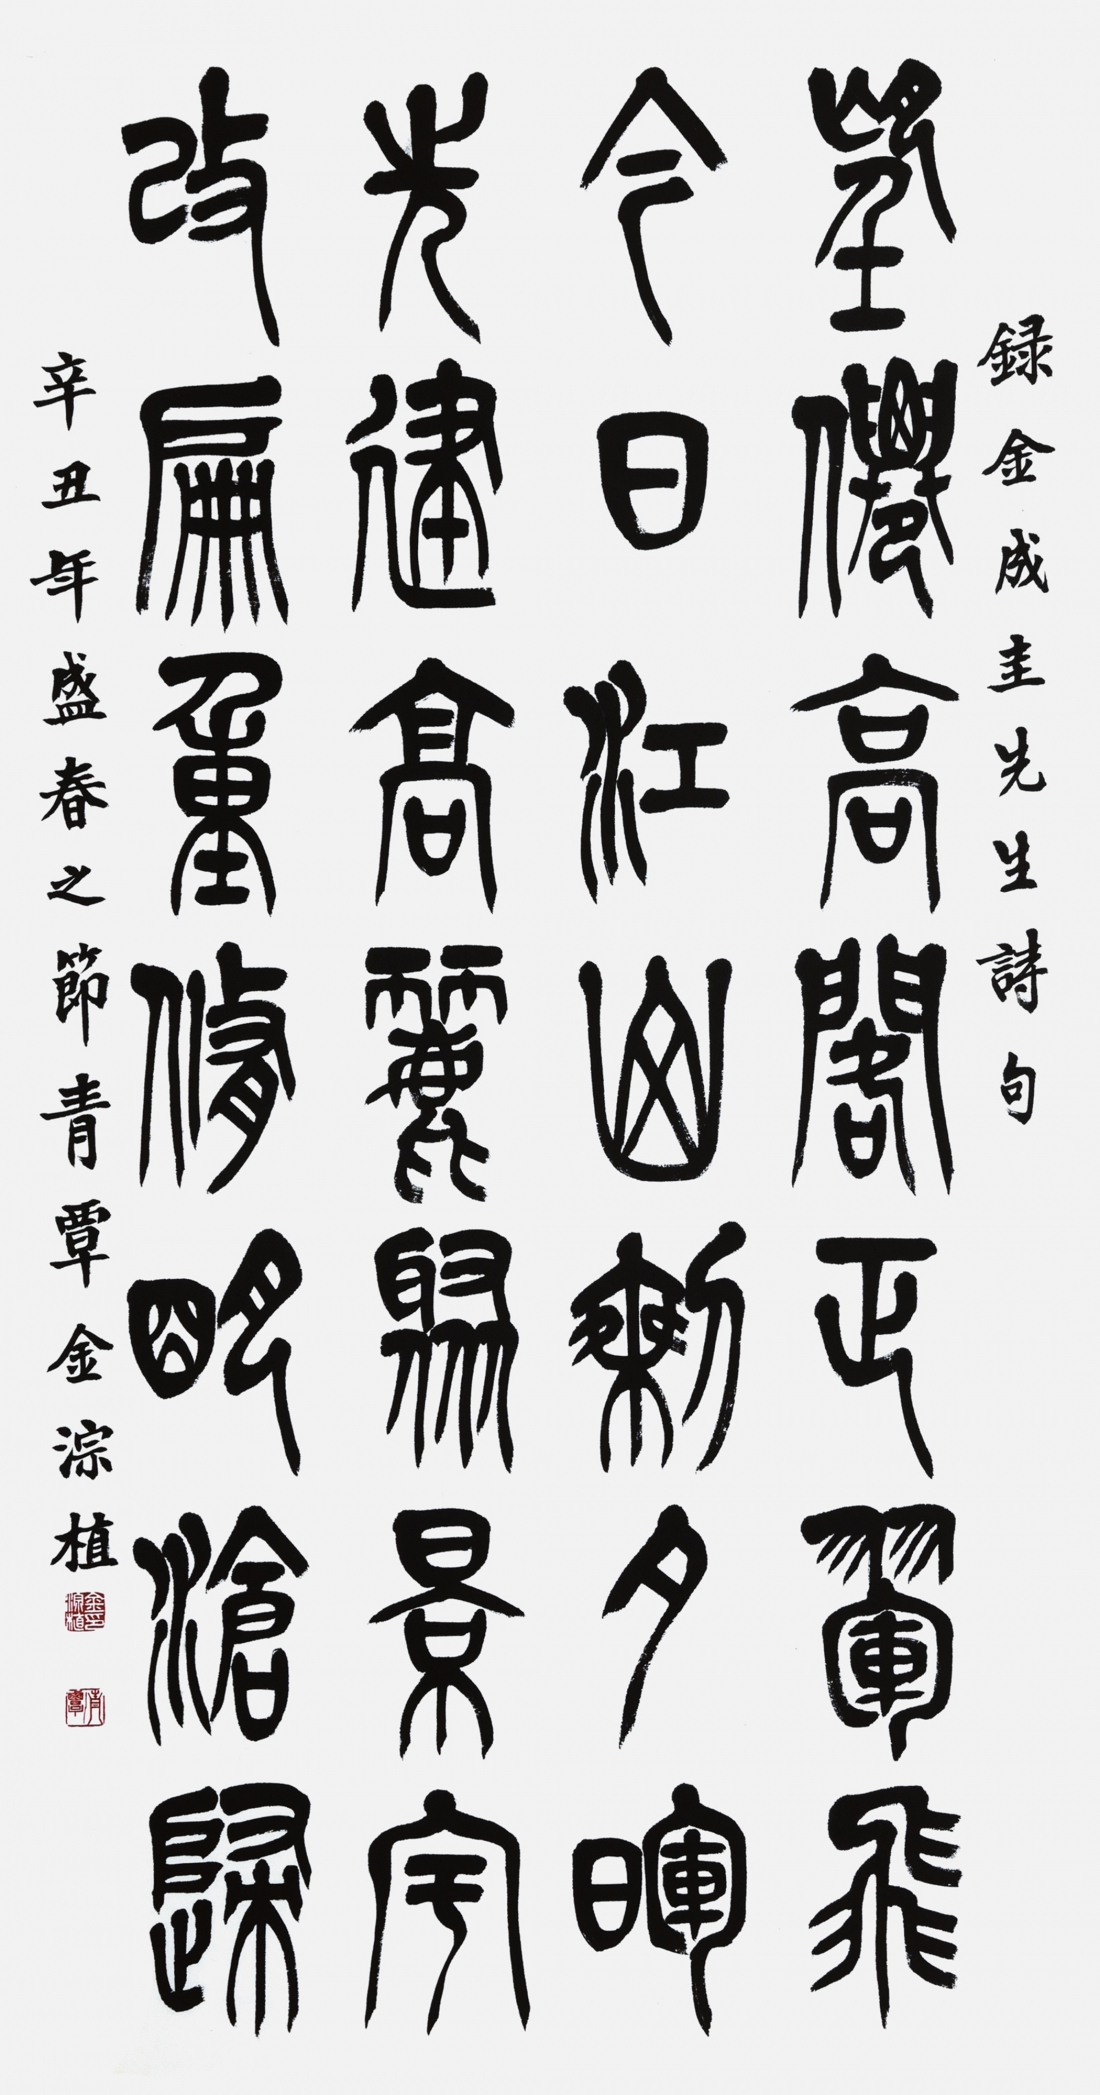 録金成圭先生詩句
望僊高閣正翬飛
今日江山剩夕暉
先建高麗聚景宇
改扁重脩明滄歸
辛丑年盛春之節青覃金淙植